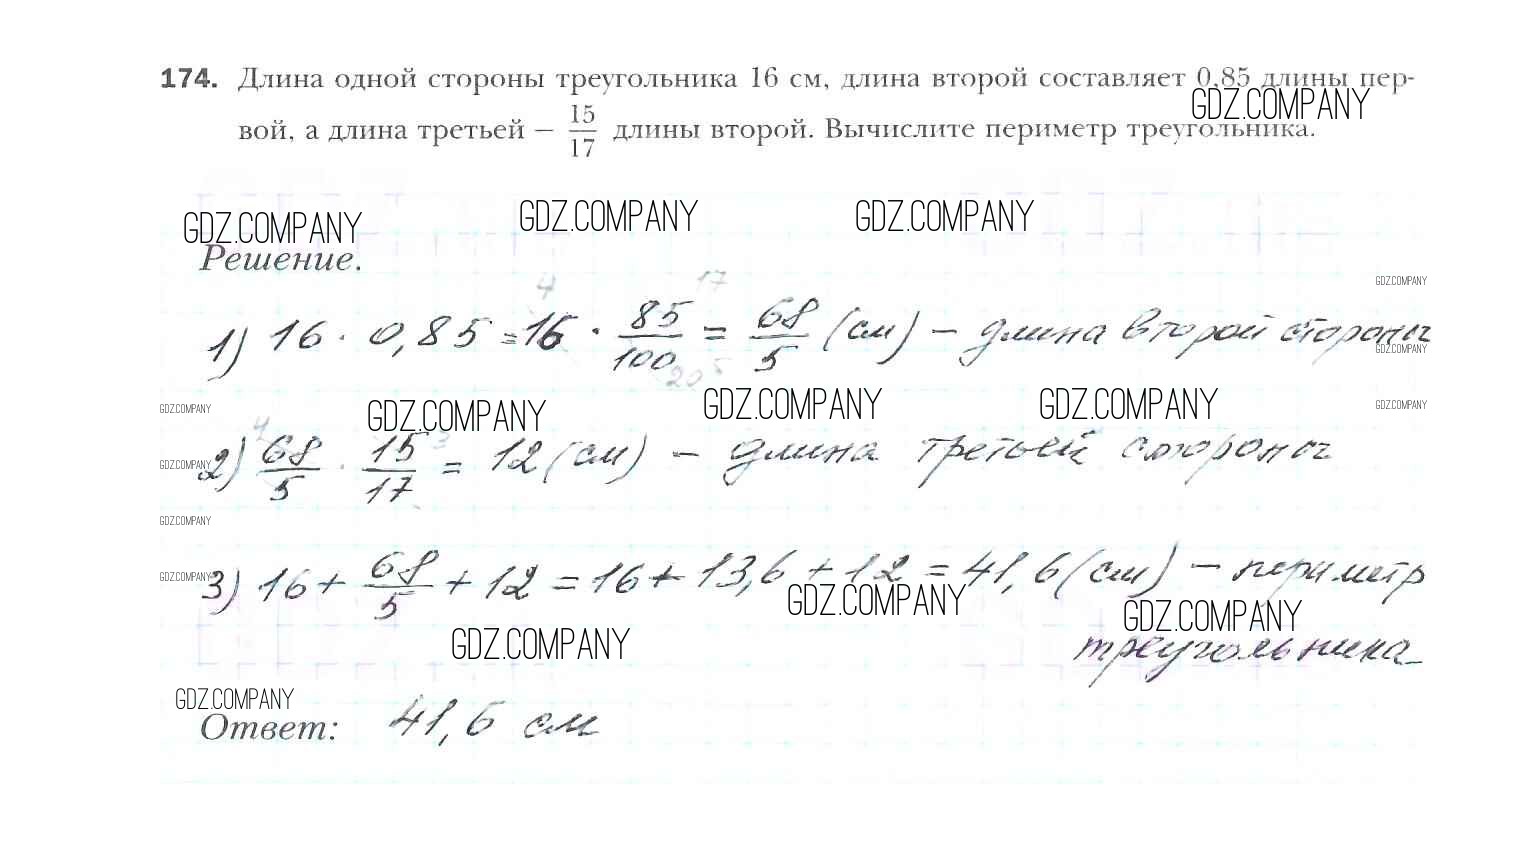 174. Длина одной стороны треугольника 16 см, длина второй составляет 0,85 длины пер-
GDZ.COMPANY
вой, а длина третьей – 15/17 длины второй. Вычислите периметр треугольника.
GDZ.COMPANY GDZ.COMPANY GDZ.COMPANY
Решение.
GDZ.COMPANY
4 17
1) 16 · 0,85 = 16 · 85/100 = 68/5 (см) – длина второй стороны
GDZ.COMPANY
20 5
GDZ.COMPANY GDZ.COMPANY GDZ.COMPANY GDZ.COMPANY GDZ.COMPANY
4 3
2) 68/5 · 15/17 = 12 (см) – длина третьей стороны
GDZ.COMPANY
GDZ.COMPANY
3) 16 + 68/5 + 12 = 16 + 13,6 + 12 = 41,6 (см) – периметр
GDZ.COMPANY GDZ.COMPANY GDZ.COMPANY
треугольника
GDZ.COMPANY
GDZ.COMPANY
Ответ: 41,6 см